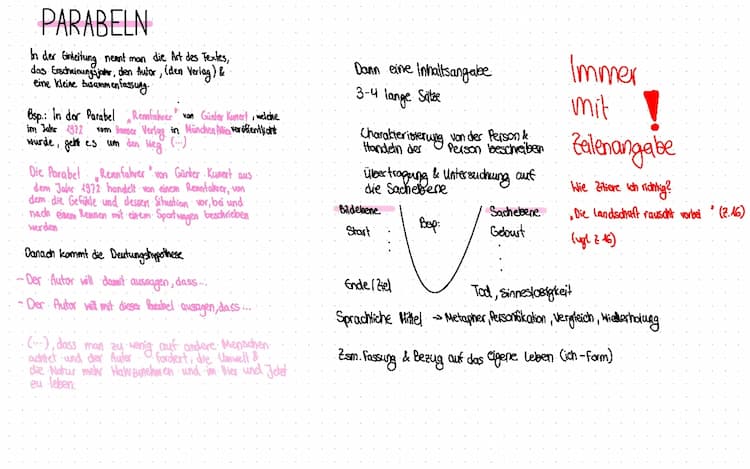 PARABELN
In der Einleitung nennt man die Art des Textes,
das Erscheinungsjahr, den Autor, (den Verlag) &
eine kleine Zusammenfassung.
Bsp.: In der Parabel „Rennfahrer" von Günter Kunert, welche
im Jahr 1972 vom Hanser Verlag in München/Wien veröffentlicht
wurde, geht es um den Weg (...)
Die Parabel „Rennfahrer" von Günter Kunert aus
dem Jahr 1972 handelt von einem Rennfahrer, von
dem die Gefühle und dessen Situation vor, bei und
nach einem Rennen mit einem Sportwagen beschrieben
werden
Danach kommt die Deutungshypothese
- Der Autor will damit aussagen, dass...
- Der Autor will mit dieser Parabel aussagen, dass...
(...), dass man zu wenig auf andere Menschen
achtet und der Autor fordert, die Umwelt &
die Natur mehr Wahrzunehmen und im Hier und Jetzt
zu leben.
Dann eine Inhaltsangabe
3-4 lange Sätze
Charakterisierung von der Person &
Handeln der Person beschreiben
Übertragung & Untersuchung auf
die Sachebene
Bildebene
Bsp:
Sachebene
Start
Geburt
:
:
Ende/Ziel
Tod, Sinneslosigkeit
Sprachliche Mittel → Metapher, Personifikation, Vergleich, Wiederholung
Zsm. Fassung & Bezug auf das eigene Leben (ich-Form)
Immer
mit
Zeilenangabe
!
Wie zitiere ich richtig?
„Die Landschaft rauscht vorbei" (Z.16)
(vgl. Z 16)